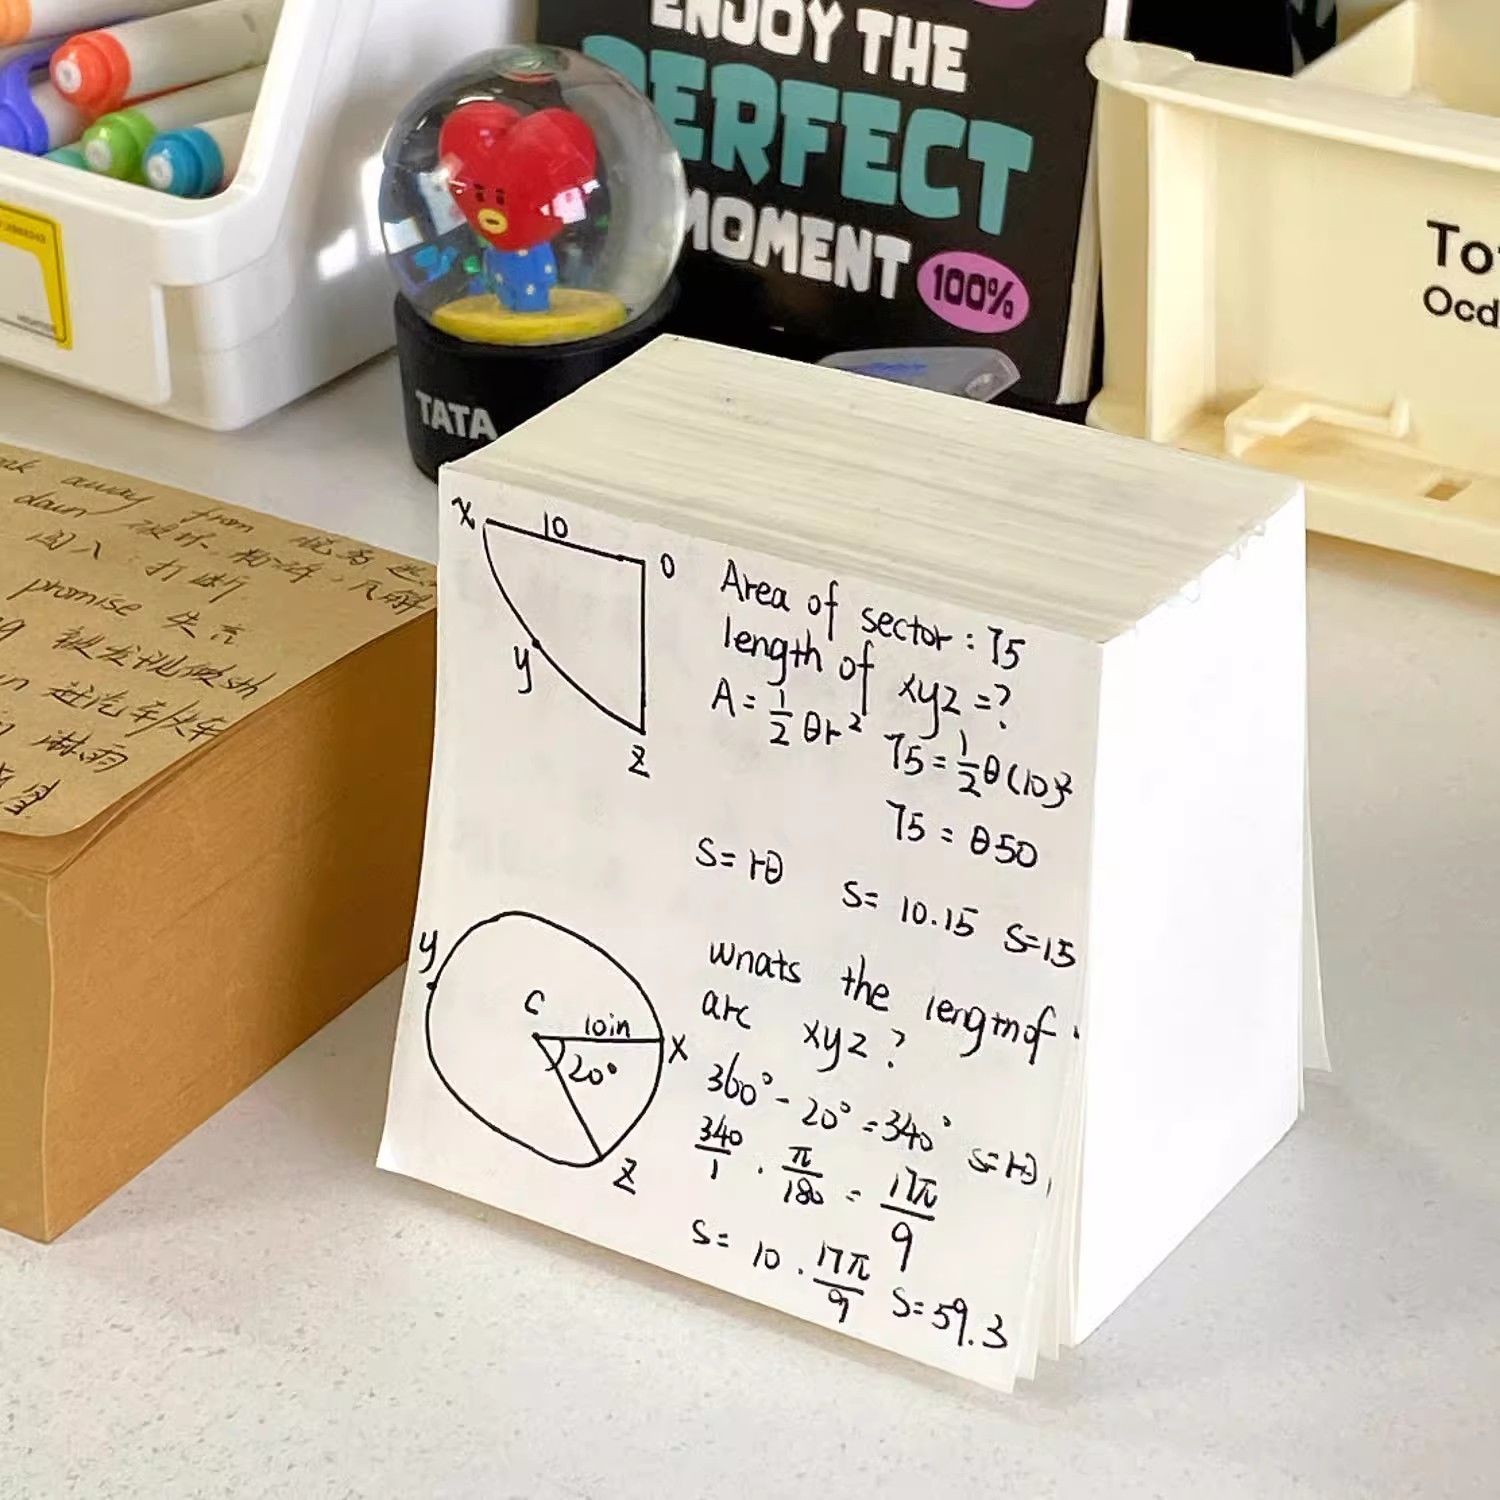 ENJOY THE
PERFECT
MOMENT
100%
TATA
Ocd
away from 脱离
down 破坏,粉碎,瓦解
闯入;打断
promise 失言
被发现做sth
赶汽车/火车
淋雨
x 10 0
y
z
Area of sector : 75
length of xyz =?
A = 1/2 θr²
75 = 1/2 θ(10)²
75 = θ50
S= rθ S= 10.15 S=15
y
C
10in
x
20°
z
wnats the lengthof
arc xyz ?
360° - 20° = 340° S=rθ
340/1 . π/180 = 17π/9
S= 10 . 17π/9 S=59.3